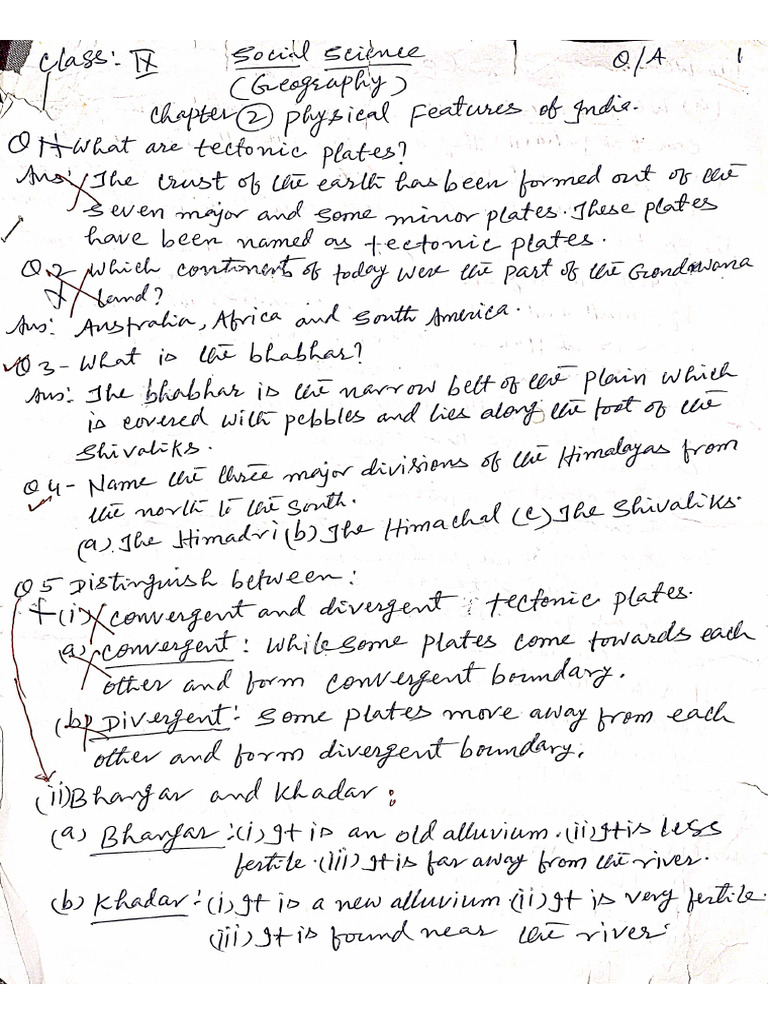 Class: IX Social Science Q/A 1
(Geography)
Chapter 2 Physical Features of India.
Q 1 - What are tectonic plates?
Ans: The crust of the earth has been formed out of the
seven major and some minor plates. These plates
have been named as tectonic plates.
Q.2 - Which continents of today were the part of the Gondwana
land?
Ans: Australia, Africa and South America.
Q 3 - What is the bhabhar?
Ans: The bhabhar is the narrow belt of the plain which
is covered with pebbles and lies along the foot of the
Shivaliks.
Q 4 - Name the three major divisions of the Himalayas from
the north to the South.
(a) The Himadri (b) The Himachal (c) The Shivaliks.
Q 5 Distinguish between:
(i) convergent and divergent tectonic plates.
(a) convergent: While some plates come towards each
other and form convergent boundary.
(b) Divergent: Some plates move away from each
other and form divergent boundary.
(ii) Bhangar and Khadar:
(a) Bhangar: (i) It is an old alluvium. (ii) It is less
fertile. (iii) It is far away from the river.
(b) Khadar: (i) It is a new alluvium (ii) It is very fertile.
(iii) It is found near the river.